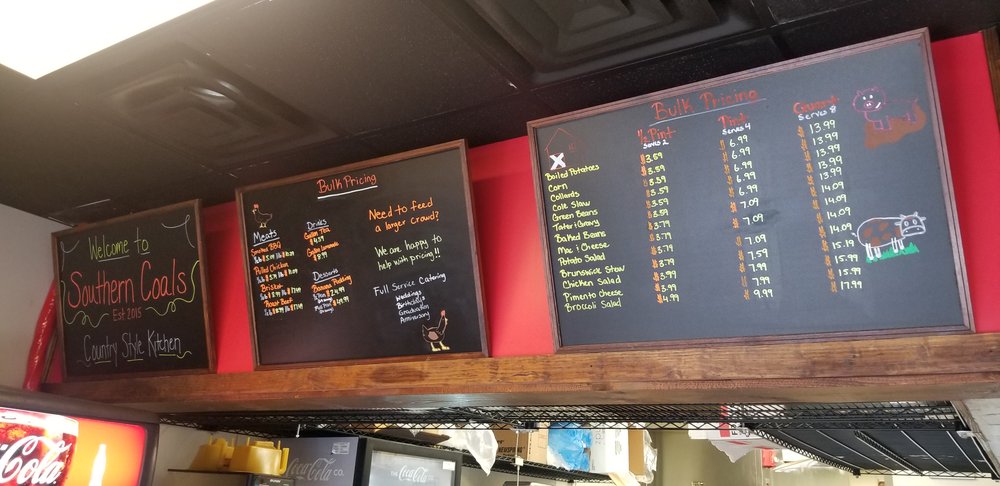 Welcome to
Southern Coals
Est 2015
Country Style Kitchen
Bulk Pricing
Meats
Smoked BBQ
Pulled Chicken
Brisket
Roast Beef
Drinks
Gallon Tea
Gallon Lemonade
Desserts
Banana Pudding
Need to feed
a larger crowd?
We are happy to
help with pricing!!
Full Service Catering
Weddings
Birthdays
Graduation
Anniversary
Bulk Pricing
1/2 Pint
Serves 2
Pint
Serves 4
Quart
Serves 8
Boiled Potatoes
Corn
Collards
Cole Slaw
Green Beans
Tater & Gravy
Baked Beans
Mac & Cheese
Potato Salad
Brunswick Stew
Chicken Salad
Pimento Cheese
Broccoli Salad
$3.59
$3.59
$3.59
$3.59
$3.59
$3.79
$3.99
$4.99
$6.99
$6.99
$6.99
$6.99
$7.09
$7.09
$7.09
$7.59
$7.99
$9.99
$13.99
$13.99
$13.99
$13.99
$14.09
$14.09
$14.09
$15.19
$15.99
$15.99
$17.99
Coca-Cola
Coca-Cola CO.
THE Coca-Cola CO.